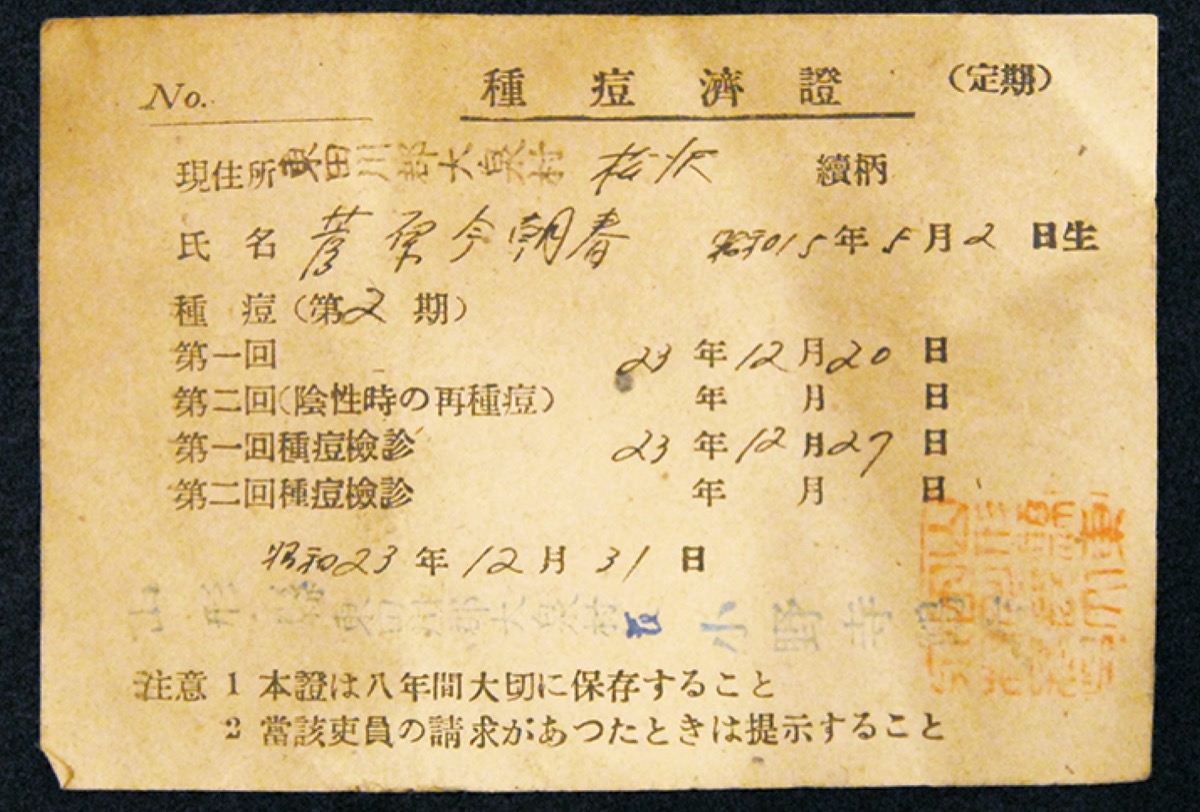 No. 種痘濟證 (定期)
現住所 東田川郡大泉村 松沢 續柄
氏名 菅原今朝春 昭和15年5月2日生
種痘(第2期)
第一回 23年12月20日
第二回(陰性時の再種痘) 年 月 日
第一回種痘檢診 23年12月27日
第二回種痘檢診 年 月 日
昭和23年12月31日
山形縣東田川郡大泉村長 小野寺
注意 1 本證は八年間大切に保存すること
2 當該吏員の請求があつたときは提示すること